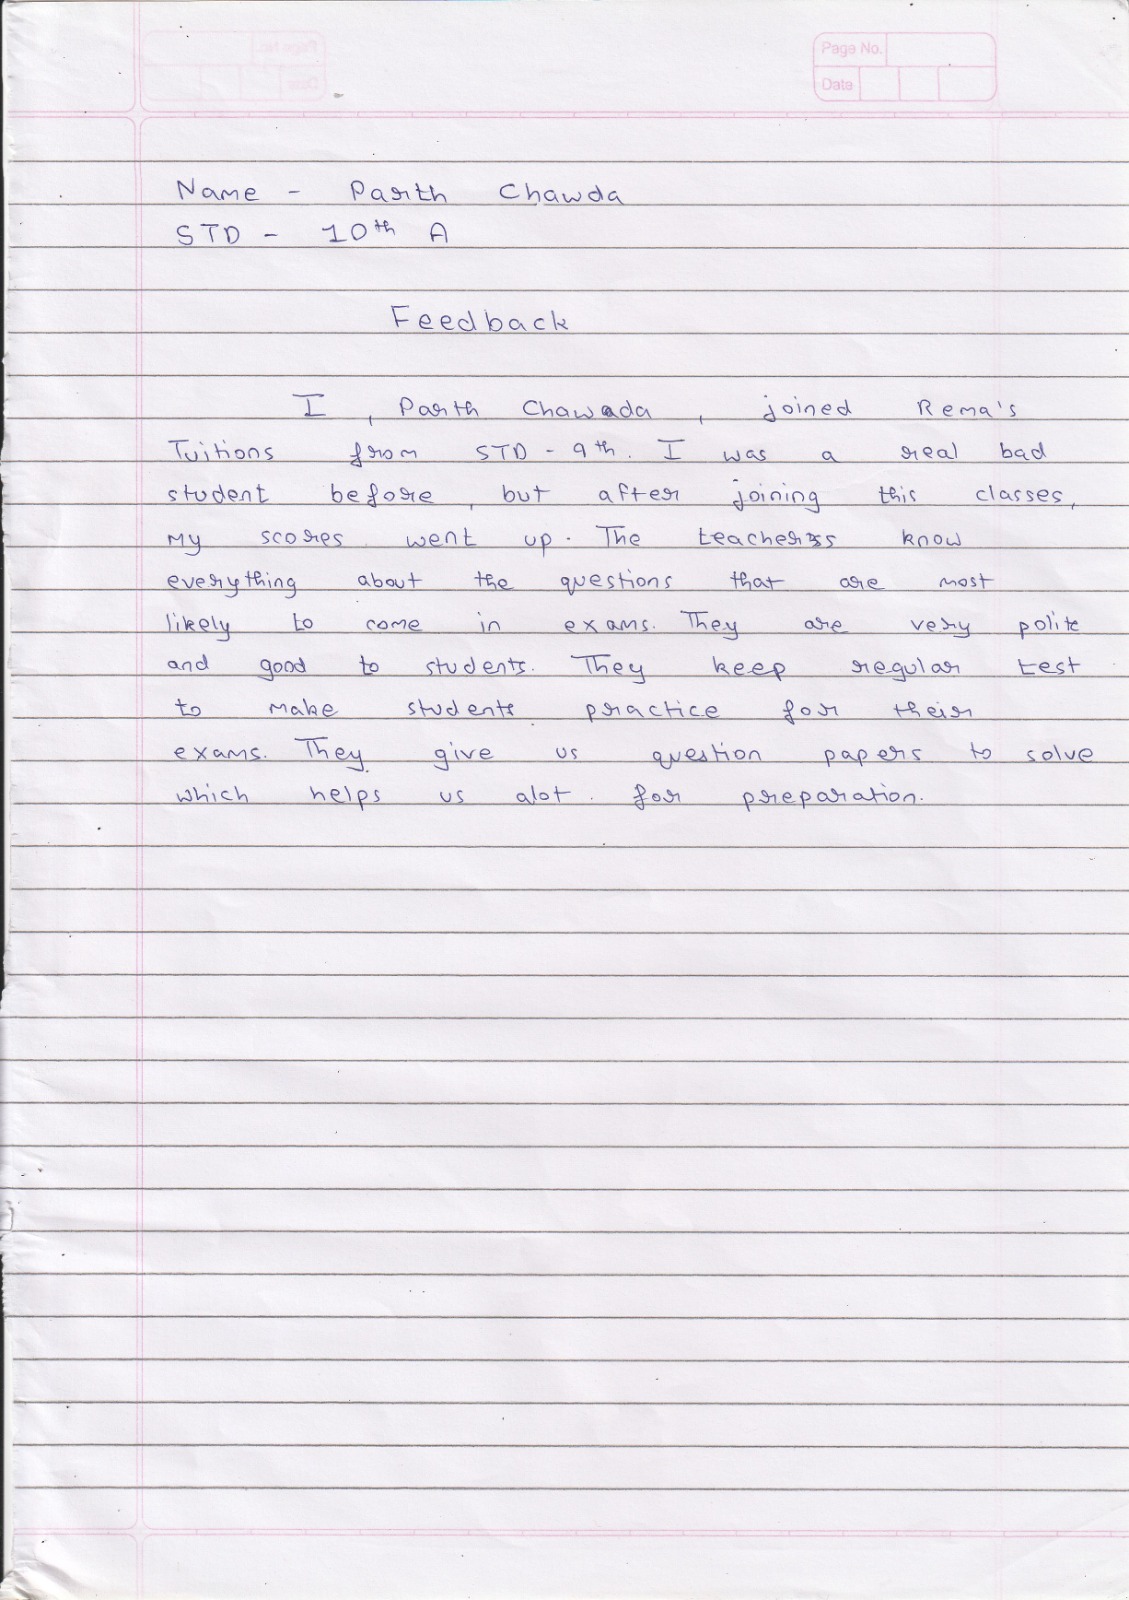 Page No.
Date
Name - Parth Chawda
STD - 10th A
Feedback
I, Parth Chawada, joined Rema's
Tuitions from STD - 9th. I was a real bad
student before, but after joining this classes,
my scores went up. The teachers know
everything about the questions that are most
likely to come in exams. They are very polite
and good to students. They keep regular test
to make students practice for their
exams. They give us question papers to solve
which helps us alot. for preparation.